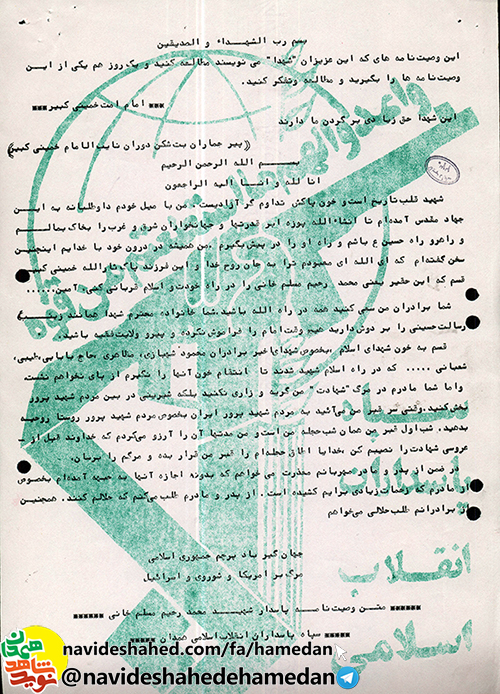 بسم رب الشهداء و الصدیقین
این وصیت‌نامه های که این عزیزان "شهدا" می نویسند مطالعه کنید و یکروز هم یکی از این
وصیت‌نامه ها را بگیرید و مطالعه وتفکر کنید.
*** امام امت خمینی کبیر ***
این شهدا حق زیادی بر گردن ما دارند
((پیر جماران بت شکن دوران نایب الامام خمینی کبیر))
بسم الله الرحمن الرحیم
انا لله و انا الیه الراجعون
شهید قلب تاریخ است و خون پاکش تداوم گر آزادیست. من با میل خودم داوطلبانه به این
جهاد مقدس آمده‌ام تا انشاءالله پوزه ابر قدرتها و جهانخواران شرق و غرب را بخاک بمالم
و راهرو راه حسین ع باشم و راه او را در پیش بگیرم. من همیشه در درون خود با خدایم اینچنین
سخن گفته‌ام که ای الله ای معبودم ترا به جان روح خدا و این فرزند پاک زهرا الله خمینی کبیر
قسم که این حقیر یعنی محمد رحیم مسلم خانی را در راه خودت و اسلام قربانی کنی. آمین.....
شما برادران من سعی کنید همه در راه الله باشید. شما خانواده محترم شهدا همانند زینب
رسالت حسینی را بر دوش دارید هیچ وقت امام را فراموش نکرده و پیرو ولایت فقیه باشید.
قسم به خون شهدای اسلام، بخصوص شهدای عیر برادران محمود شهبازی، مظاهری، حاج بابایی، طیبی،
شعبانی ..... که در راه اسلام شهید شدند تا انتقام خون آنها را نگیرم از پای نخواهم نشست.
واما شما مادرم در مرگ "شهادت" من گریه و زاری نکنید بلکه شیرینی در بین مردم شهید پرور
پخش کنید. وقتی سر قبر من می‌آئید به مردم شهید پرور ایران بخصوص مردم شهید پرور روستا روحیه
بدهید. شب اول قبر من همان شب حجله من است و من مدتها آن را آرزو می‌کردم که خداوند قبل از
عروسی شهادت را نصیبم کن. خدایا اطاق حجله‌ام را قبر من قرار بده و مرگم را برسان.
در ضمن از پدر و مادر مهربانم معذرت می خواهم که بدون اجازه آنها به جبهه آمده‌ام بخصوص
از مادرم که زحمات زیادی برایم کشیده است. از پدر و مادرم طلب می‌کنم که حلالم کنند. همچنین
از برادرانم طلب حلالی می‌خواهم
جهان گیر باد پرچم جمهوری اسلامی
مرگ بر امریکا و شوروی و اسرائیل
****** متن وصیت نامه پاسدار شهید محمد رحیم مسلم خانی ******
***** سپاه پاسداران انقلاب اسلامی همدان *****
سپاه
پاسداران
انقلاب
اسلامی
نوید شاهد
همدان
navideshahed.com/fa/hamedan
@navideshahedehamedan